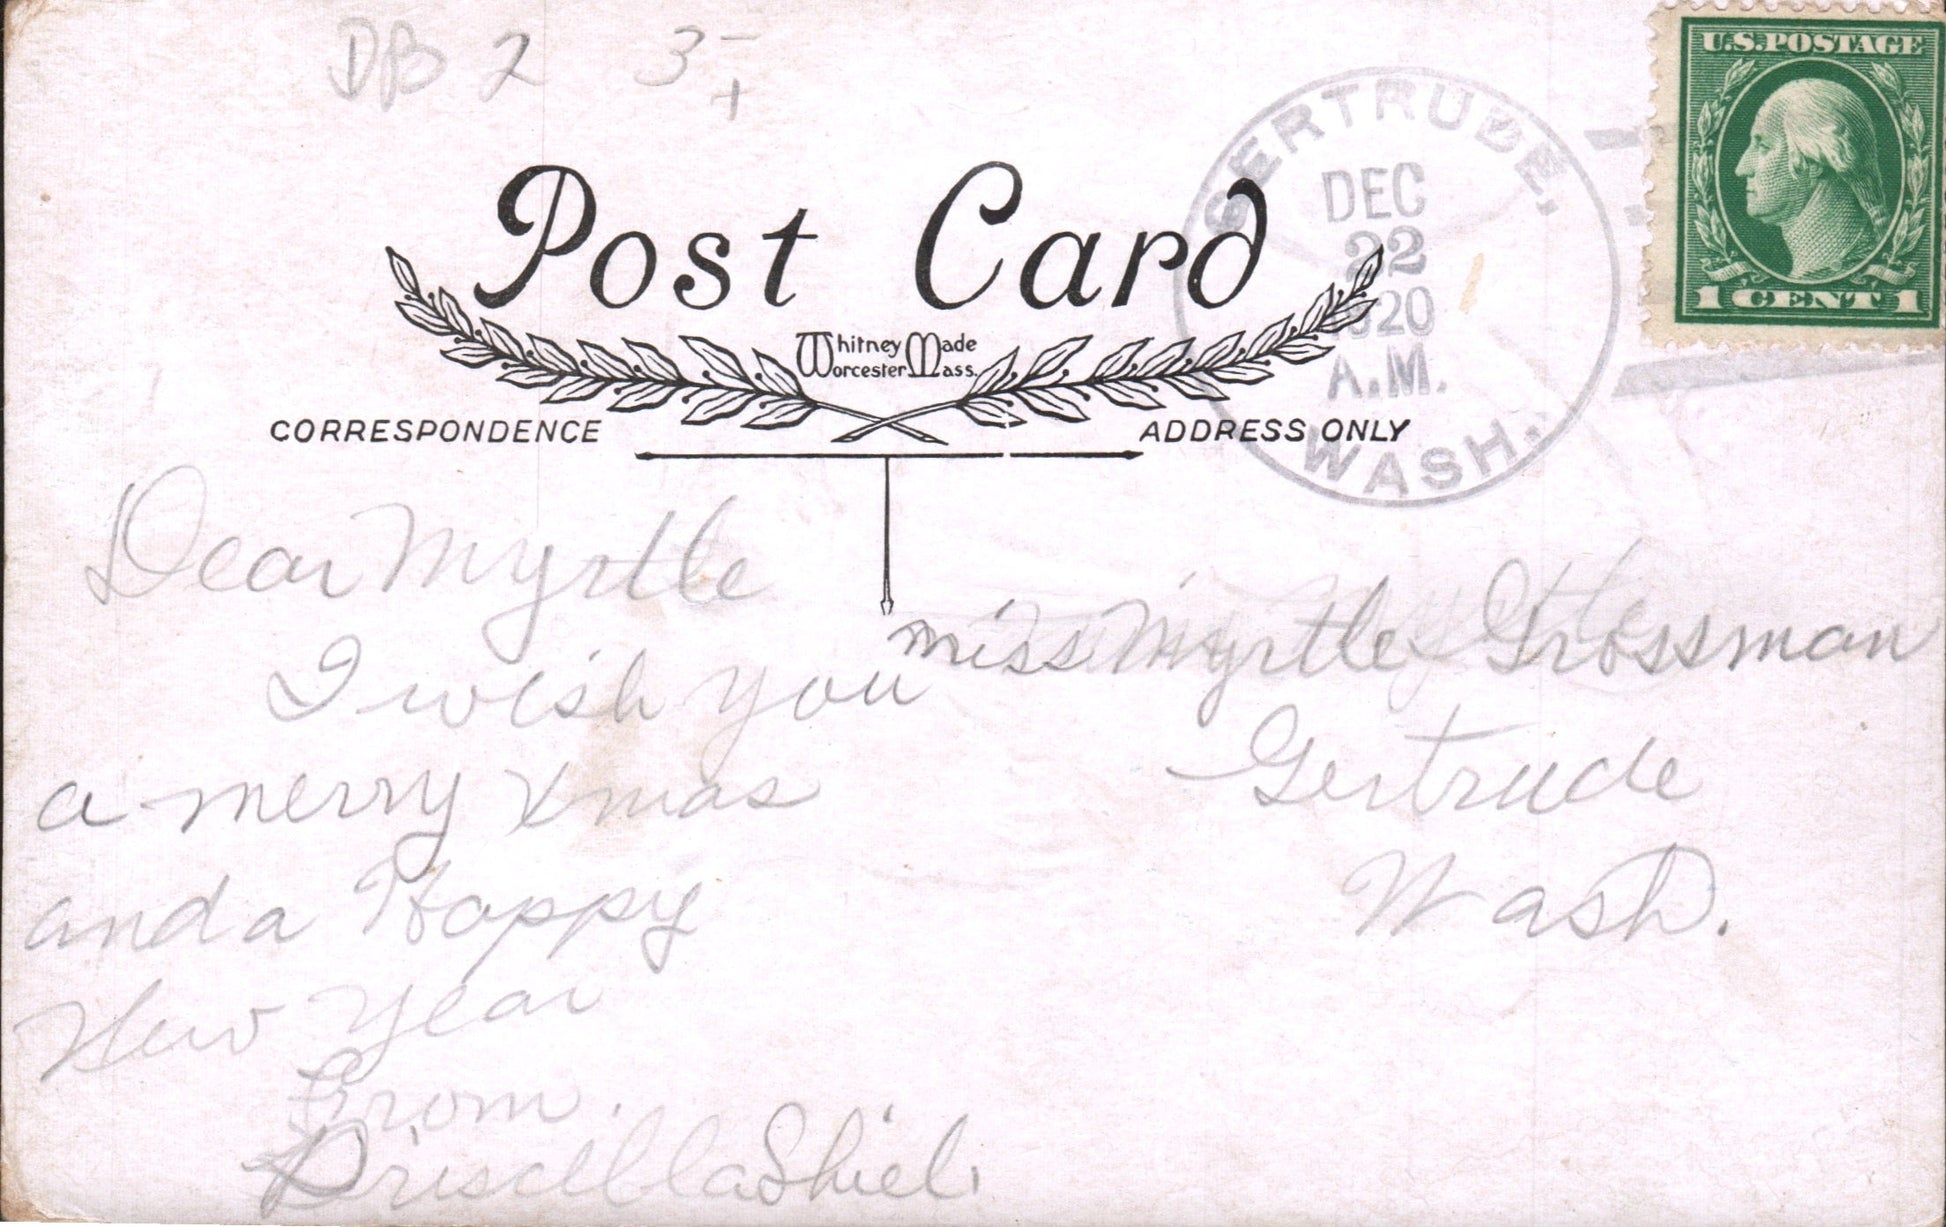 DB 2 3-
+
U.S. POSTAGE
1 CENT 1
GERTRUDE,
DEC
22
1920
A.M.
WASH.
Post Card
Whitney Made
Worcester Mass.
CORRESPONDENCE
ADDRESS ONLY
Dear Myrtle
I wish you
a merry xmas
and a Happy
New Year
From.
Priscilla Shiel.
miss Myrtle Grossman
Gertrude
Wash.